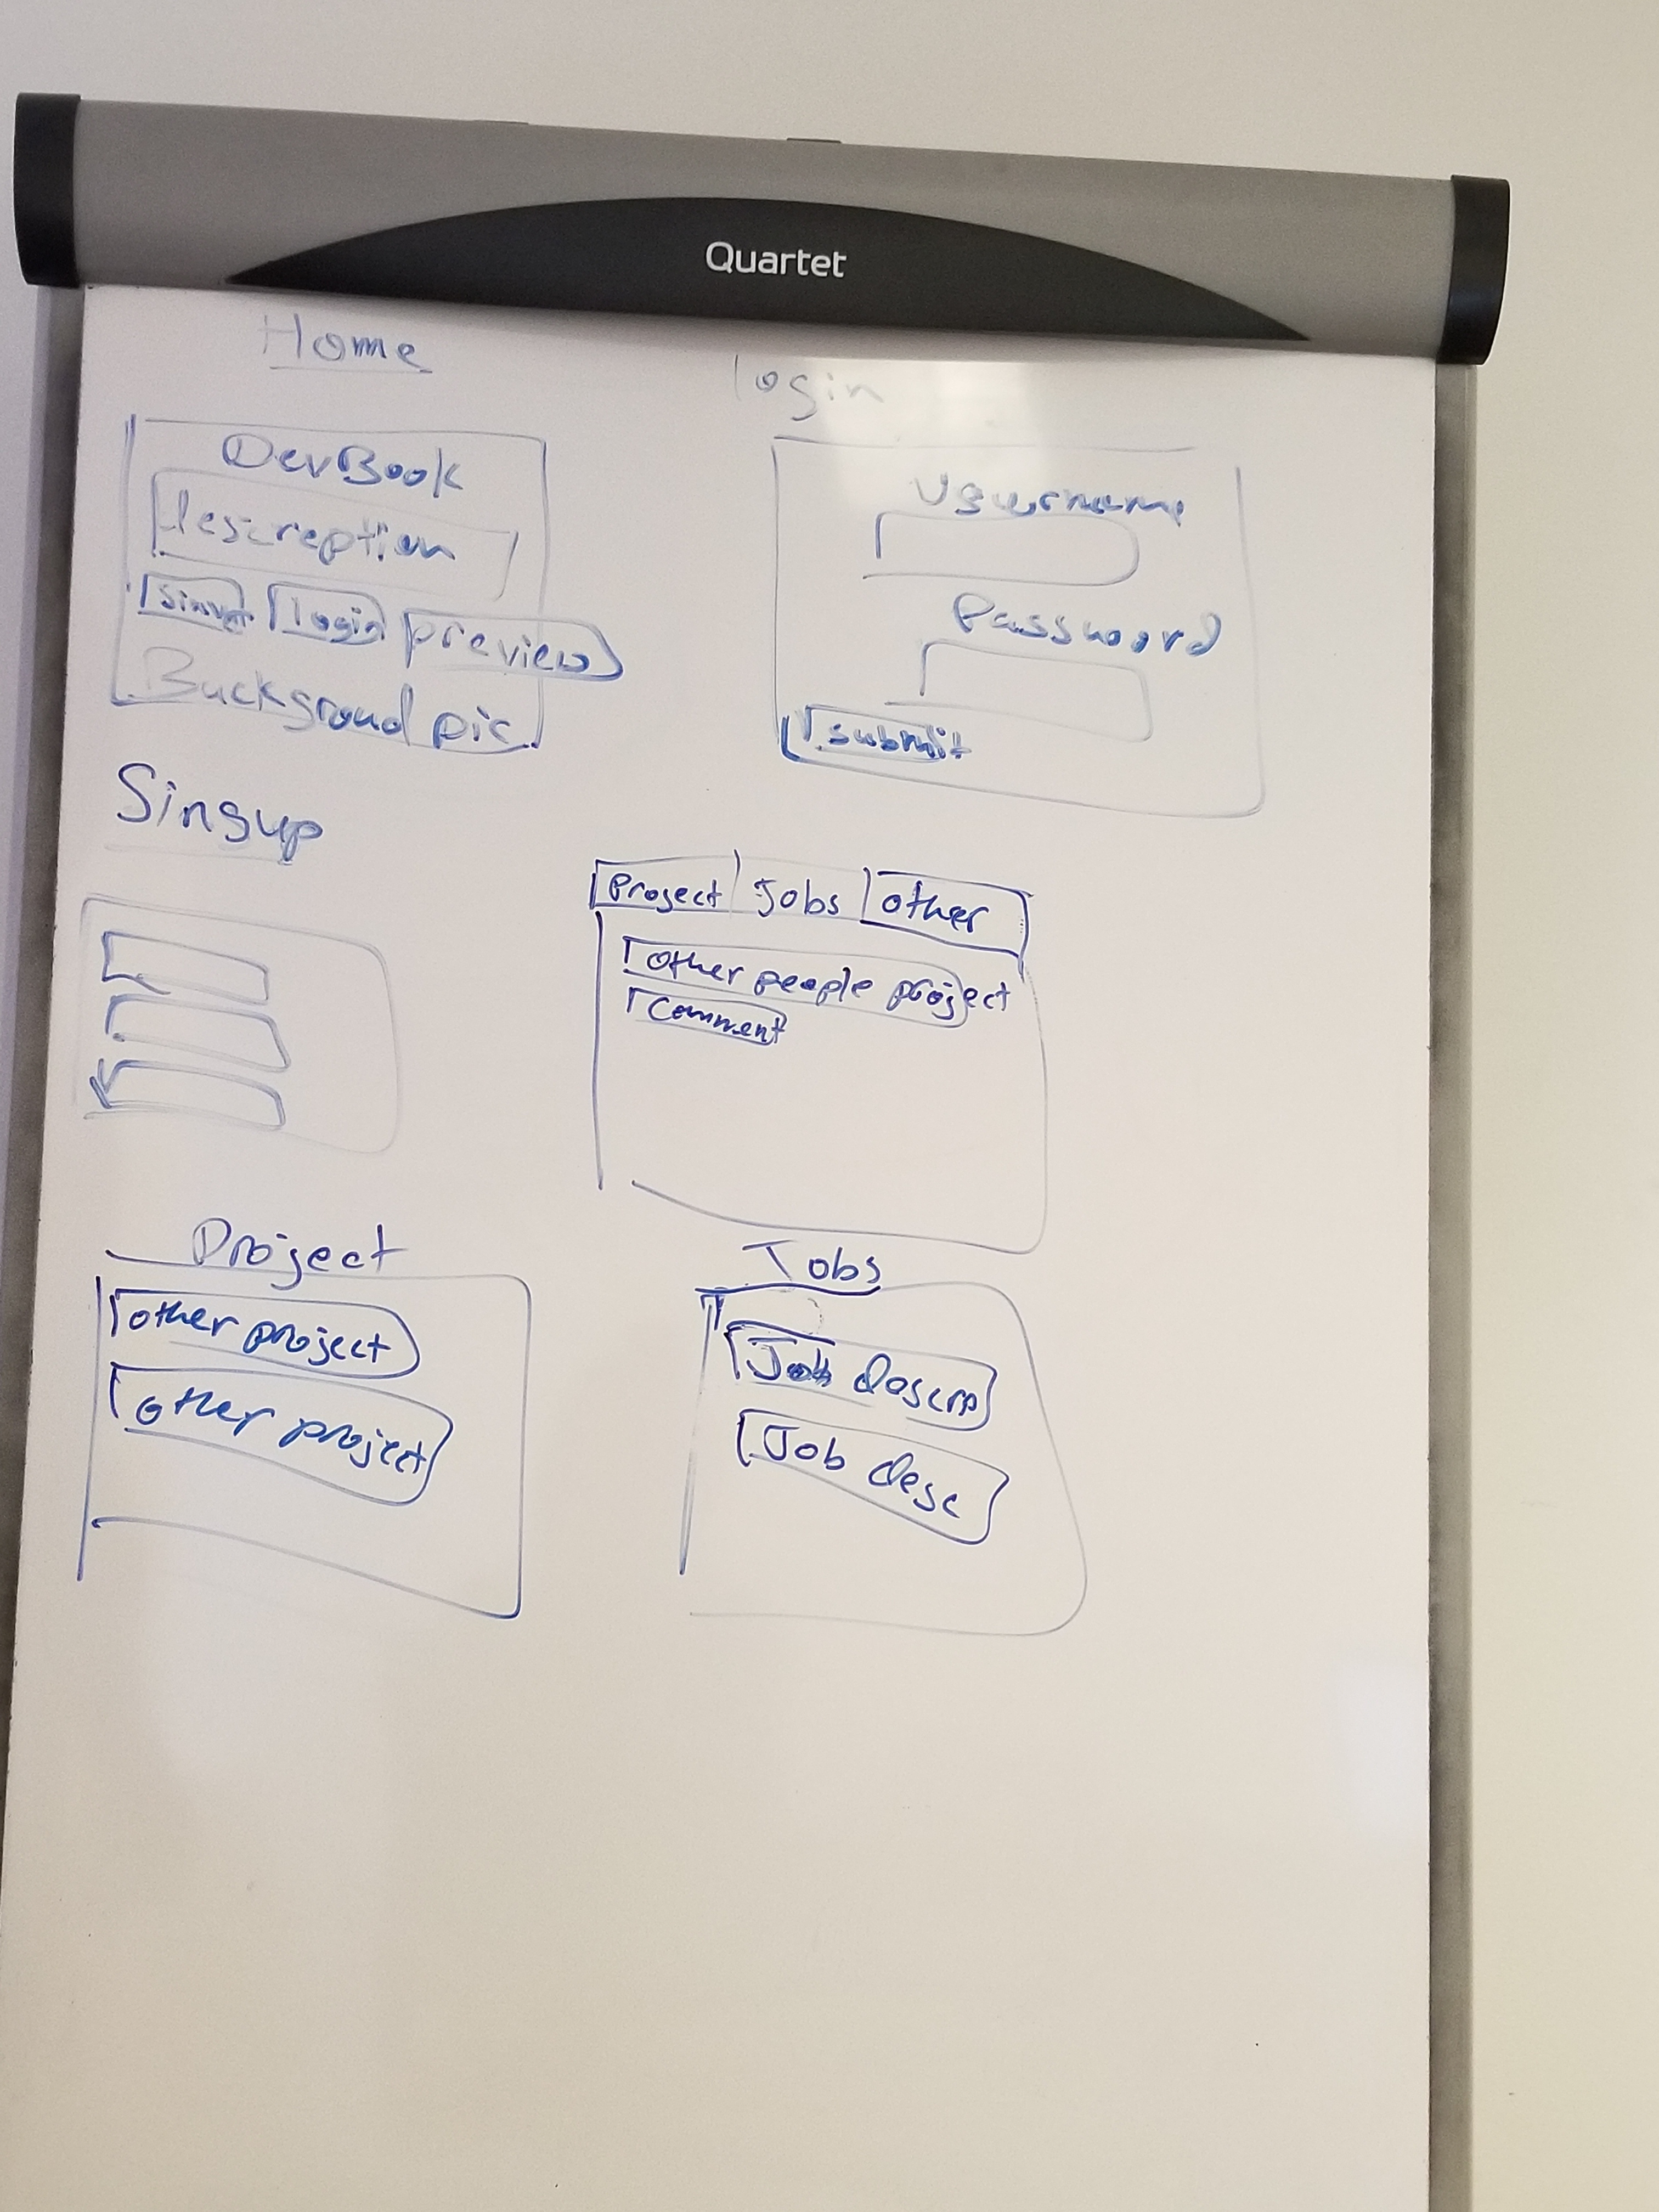 Quartet
Home
login
DevBook
descreption
login preview
Backgroud pic
Username
Password
submit
Singup
Project Jobs other
other people project
Comment
Project
other project
other project
Jobs
Job descrp
Job desc